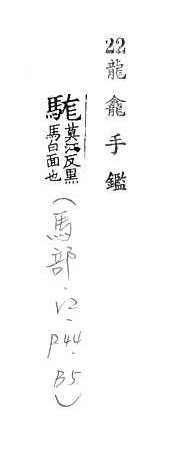 22 龍龕手鑑
駹 莫江反黑
馬白面也
(馬部·V2·P44·B5)